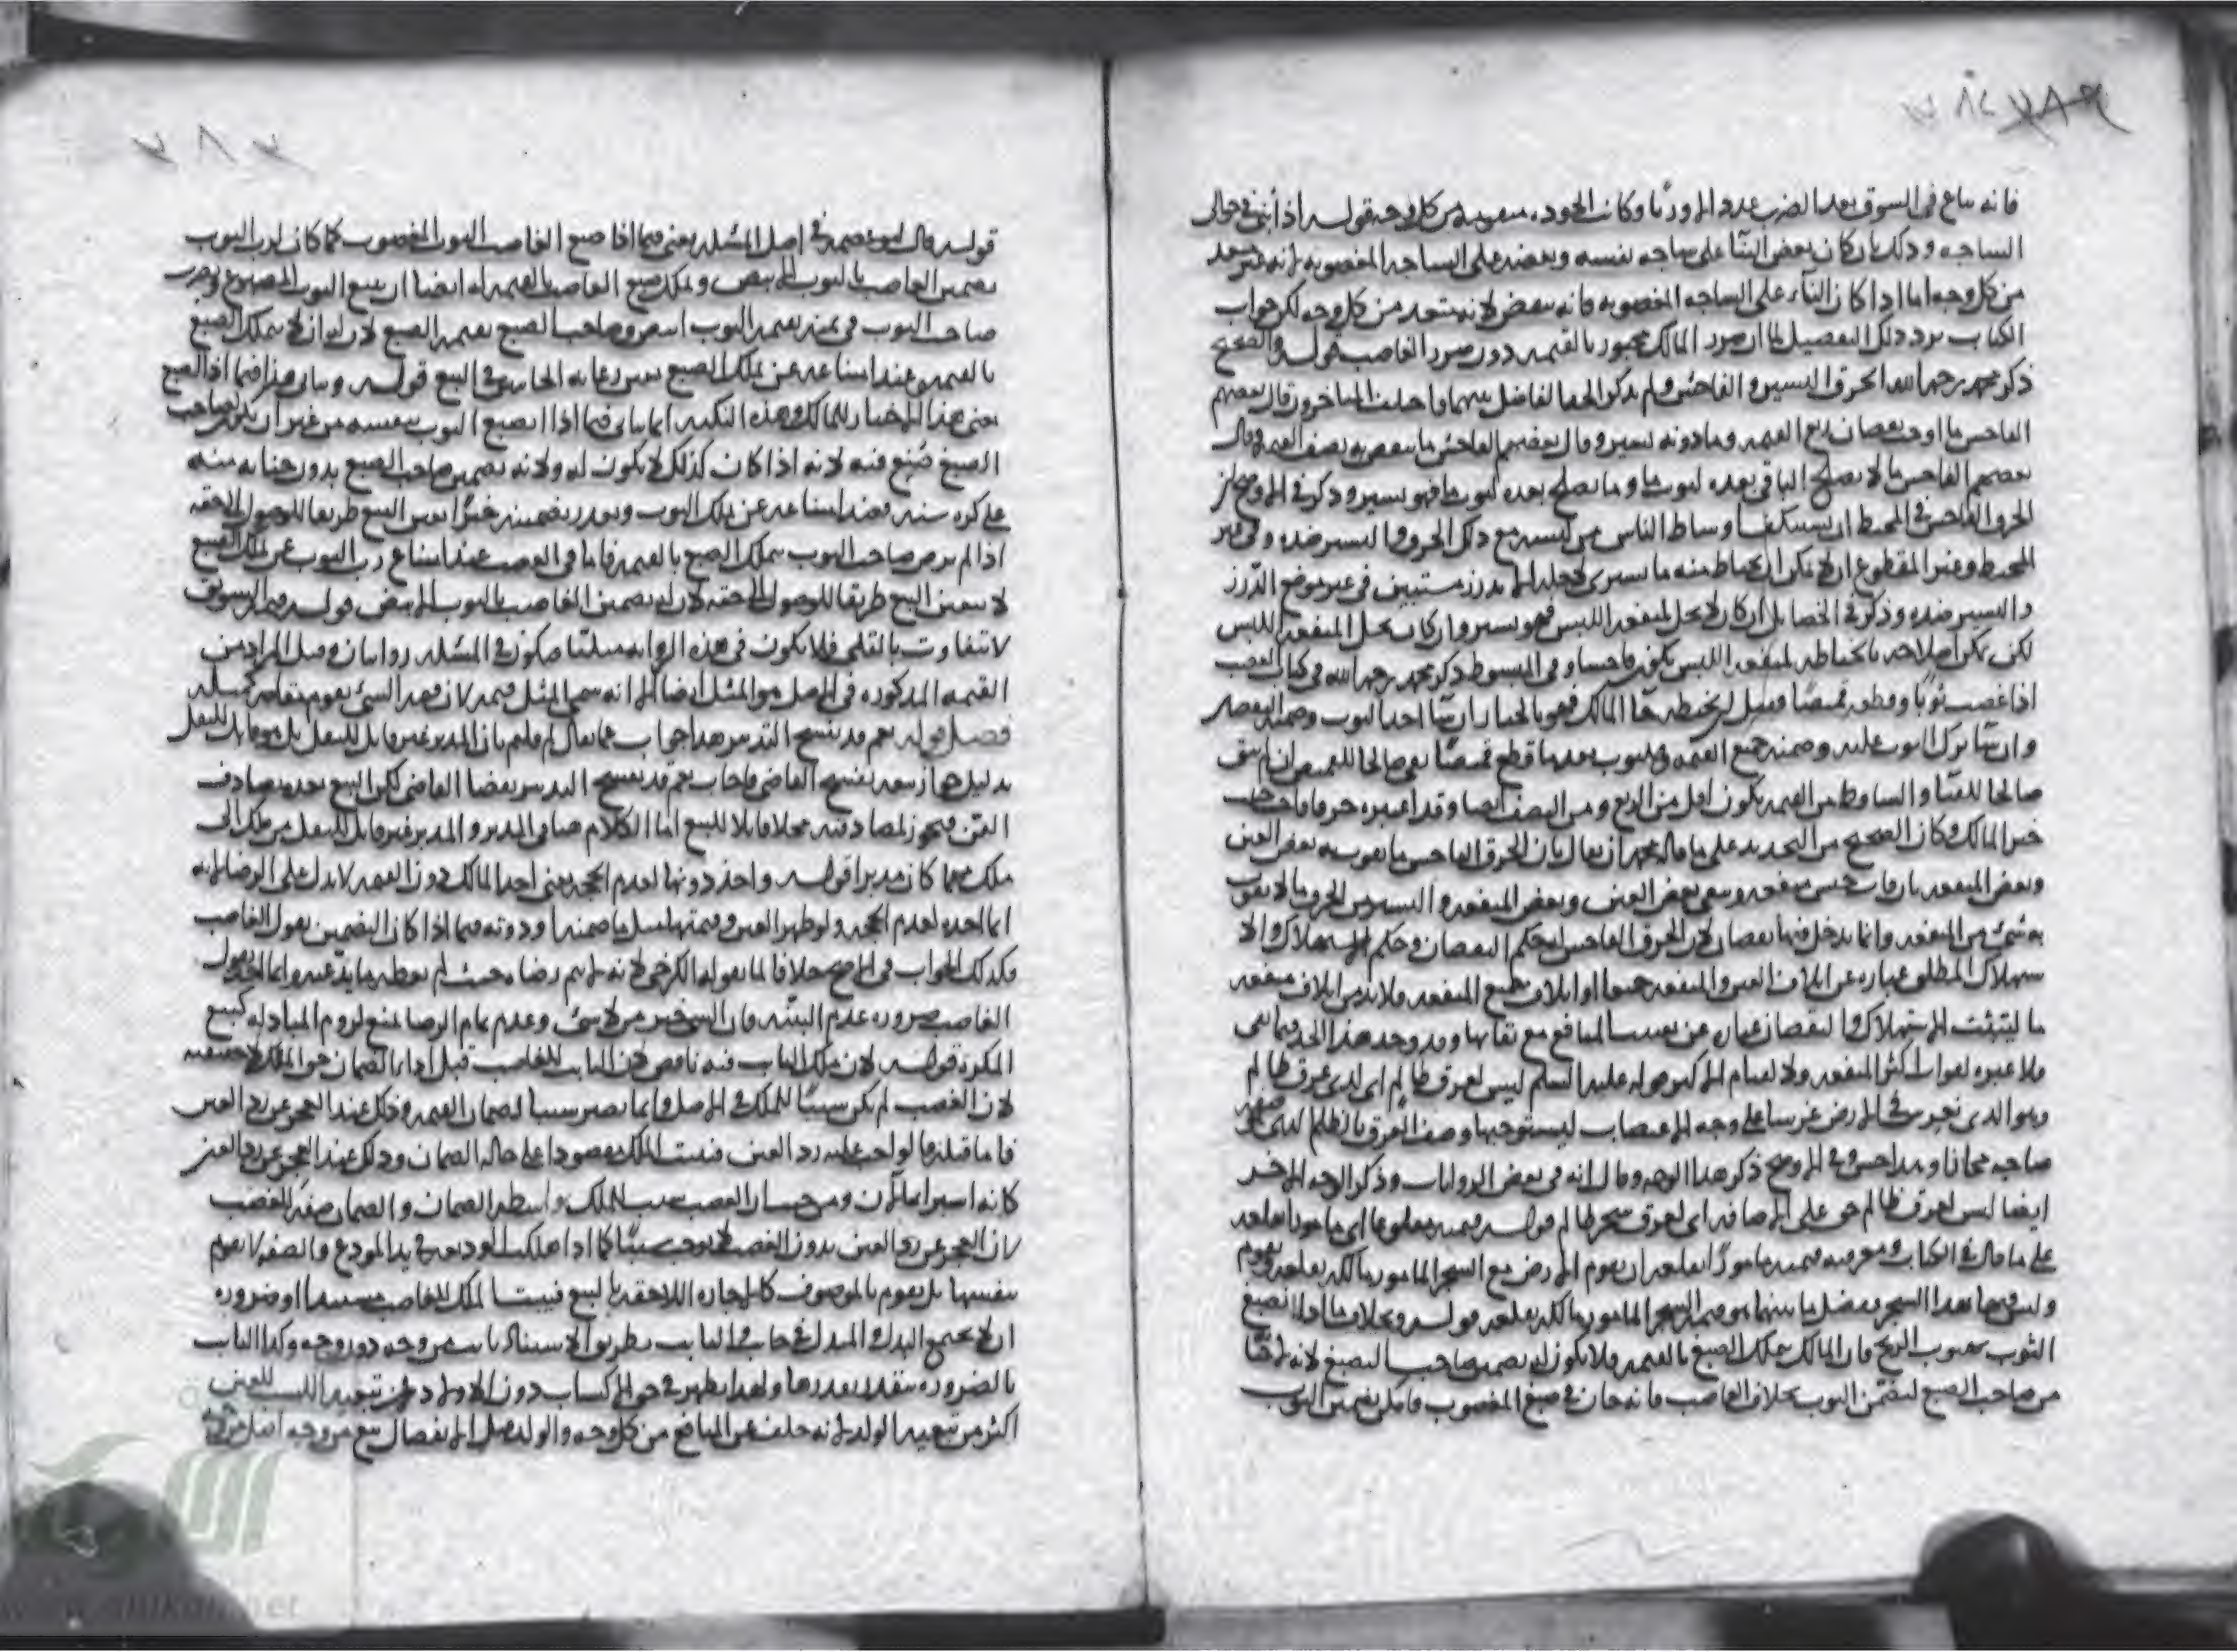 فانه يباع في السوق بعد الضرب عددا لا وزنا وكانت الجوده من كل وجه قوله اذا بنى في حوالي
الساجه وذلك بان كان بعض البناء على ساجه نفسه وبعضه على الساجه المغصوبه لانه غير متعد
من كل وجه اما اذا كان البناء على الساجه المغصوبه فانه ينقض لانه متعد من كل وجه لكن جواب
الكتاب يرد ذلك التفصيل لما ان ضرر المالك مجبور بالقيمه دون ضرر الغاصب قوله والصحيح
ذكر محمد رحمه الله الخرق اليسير والفاحش ولم يذكر الحد الفاصل بينهما واختلف المتاخرون قال بعضهم
الفاحش ما اوجب نقصان ربع القيمه وما دونه يسير وقال بعضهم الفاحش ما ينقص به نصف القيمه وقال
بعضهم الفاحش ما لا يصلح الباقي بعده لثوب ما وما يصلح بعده لثوب ما فهو يسير وذكر في
الخرق الفاحش في المحيط ان يستنكف اوساط الناس من لبسه مع ذلك الخرق واليسير ضده وفي غير
المخيط وغير المقطوع ان لا يمكن ان يخاط منه ما يسير الا بدرز مستبين في غير موضع الدرز
واليسير ضده وذكر في الخصايل ان كان لا يخل لمنفعه اللبس فهو يسير وان كان يخل المنفعه اللبس
لكن يمكن اصلاحه بالخياطه لمنفعه اللبس يكون فاحشا وفي المبسوط ذكر محمد رحمه الله في كتاب الغصب
اذا غصب ثوبا وقطعه قميصا وقبل ان يخيطه جاء المالك فهو بالخيار ان شاء اخذ الثوب وضمنه النقصان
وان شاء ترك الثوب عليه وضمنه جميع القيمه والثوب بعد ما قطع قميصا بقي صالحا للقميص ان لم يبق
صالحا للقباء والساقط من القيمه يكون اقل من الربع ومن النصف ايضا وقد اعتبره خرقا فاحشا حيث
خير المالك وكان الصحيح من التحديد على ما قاله محمد ان يقال بان الخرق الفاحش ما يفوت به بعض العين
وبعض المنفعه بان فات جنس منفعه وبقي بعض العين وبعض المنفعه واليسير من الخرق ما لا يفوت
به شيء من المنفعه وانما يدخل فيها نقصان لان الخرق الفاحش له حكم النقصان وحكم الاستهلاك والا
ستهلاك المطلق عباره عن اتلاف العين والمنفعه جميعا او اتلاف جميع المنفعه ولا بد من اتلاف منفعه
ما ليثبت الاستهلاك والنقصان عباره عن تعييب المنافع مع بقائها وقد وجد هذا الحد فيما بقي
ولا عبره لفوات اكثر المنفعه ولا لقيام الاكثر قوله عليه السلم ليس لعرق ظالم اي لذي عرق ظالم
وهو الذي يغرس في الارض غرسا على وجه الاغتصاب ليستوجبها وصف العرق بالظلم الذي هو صفه
صاحبه مجازا ذكر هذا الوجه وقال انه في بعض الروايات وذكر الوجه الاخير
ايضا ليس لعرق ظالم حق على الاضافه اي لعرق شجر ظالم قوله وقيمته مقلوعا اي مامورا بقلعه
على ما قال في الكتاب ومعرفه قيمته مامورا بقلعه ان يقوم الارض مع الشجر المامور مالكه بقلعه ويقوم
وليس فيها هذا الشجر وفضل ما بينهما هو قيمه الشجر المامور مالكه بقلعه قوله وبخلاف ما اذا انصبغ
الثوب بهبوب الريح فان المالك يملك الصبغ بالقيمه ولا يكون له تضمين صاحب الصبغ لانه لا جنايه
من صاحب الصبغ ليضمن الثوب بخلاف الغاصب فانه جان في صبغ المغصوب فامكن تضمين الثوب
قوله قال ابو عصمه في اصل المسئله يعني فيما اذا صبغ الغاصب الثوب المغصوب كما كان لرب الثوب
تضمين الغاصب بالثوب الابيض وتملك صبغ الغاصب بالقيمه له ايضا ان يبيع الثوب المصبوغ ويضرب
صاحب الثوب في ثمنه بقيمه الثوب ابيض وصاحب الصبغ بقيمه الصبغ لان له ان لا يتملك الصبغ
بالقيمه وعند امتناعه عن تملك الصبغ تعين رعايه الجانبين في البيع قوله ويتاتى هذا فيما اذا انصبغ
يعني هذا الاختيار للمالك وهذه النكته انما ياتي فيما اذا انصبغ الثوب بنفسه من غير ان يكون صاحب
الصبغ صبغ فيه لانه اذا كان كذلك لا يكون له ولايه تضمين صاحب الصبغ بدون جنايه منه
على فعند امتناعه عن تملك الثوب وتعذر تضمينه جبرا تعين البيع طريقا للوصول الى حقه
اذا لم يرض صاحب الثوب بتملك الصبغ بالقيمه فاما في الغصب عند امتناع رب الثوب عن تملك الصبغ
لا يتعين البيع طريقا للوصول الى حقه لان له تضمين الغاصب بالثوب الابيض قوله وقيمه السويق
لا تتفاوت بالقلي فلا يكون في هذه الروايه مثليا فيكون في المسئله روايتان وقيل المراد من
القيمه المذكوره في الاصل هو المثل ايضا الا انه سمى المثل قيمه لان قيمه الشيء يقوم مقامه كمثله
فصل قوله نعم قد ينفسخ التدبير هذا جواب عما يقال لم قلتم بان المدبر غير قابل للنقل بل هو قابل للنقل
بدليل جواز بيعه بفسخ القاضي فاجاب نعم قد ينفسخ التدبير بقضا القاضي لكن البيع بعده يصادف
القن فيجوز لمصادفته محلا قابلا للبيع اما الكلام في المدبر والمدبر غير قابل للنقل من ملك الى
ملك مهما كان مدبرا قوله واخذ دونها لعدم الحجه يعني اخذ المالك دون القيمه لا يدل على الرضا لانه
انما اخذه لعدم الحجه ولو ظهر العين وقيمتها مثل ما ضمنه او دونه فيما اذا كان التضمين بقول الغاصب
فكذلك الجواب في الاصح خلافا لما يقوله الكرخي لانه لم يتم رضاه حيث لم يعطه ما يدعيه وانما اخذ بقول
الغاصب ضروره عدم البينه فان الشيء خير من لا شيء وعدم تمام الرضا يمنع لزوم المبادله كبيع
المكره قوله لان ملك الغاصب فيه ناقص لان الثابت للغاصب قبل اداء الضمان حق الملك لا حقيقته
لان الغصب لم يكن سببا للملك في الاصل وانما يصير سببا لضمان القيمه وذلك عند العجز عن رد العين
فاما قبله فالواجب عليه رد العين فيثبت الملك مقصودا على حاله الضمان وذلك عند العجز عن رد العين
كانه اشتراه الان ومن حيث ان الغصب سبب للملك بواسطه الضمان والضمان صفه للغصب
لان العجز عن رد العين بدون الغصب لا يوجب شيئا كما اذا هلكت الوديعه في يد المودع والصفه لا تقوم
بنفسها بل يقوم بالموصوف كالاجازه اللاحقه بالبيع فيثبت الملك للغاصب مستندا او ضروره
ان لا يجتمع البدل والمبدل في جانب والثابت بطريق الاستناد ثابت من وجه دون وجه وكذا الثابت
بالضروره يتقدر بقدرها ولهذا يظهر في حق الاكساب دون الاولاد لان تبعيه الكسب للعين
اكثر من تبعيه الولد لانه خلف عن المنافع من كل وجه والولد قبل الانفصال تبع من وجه اصل من وجه